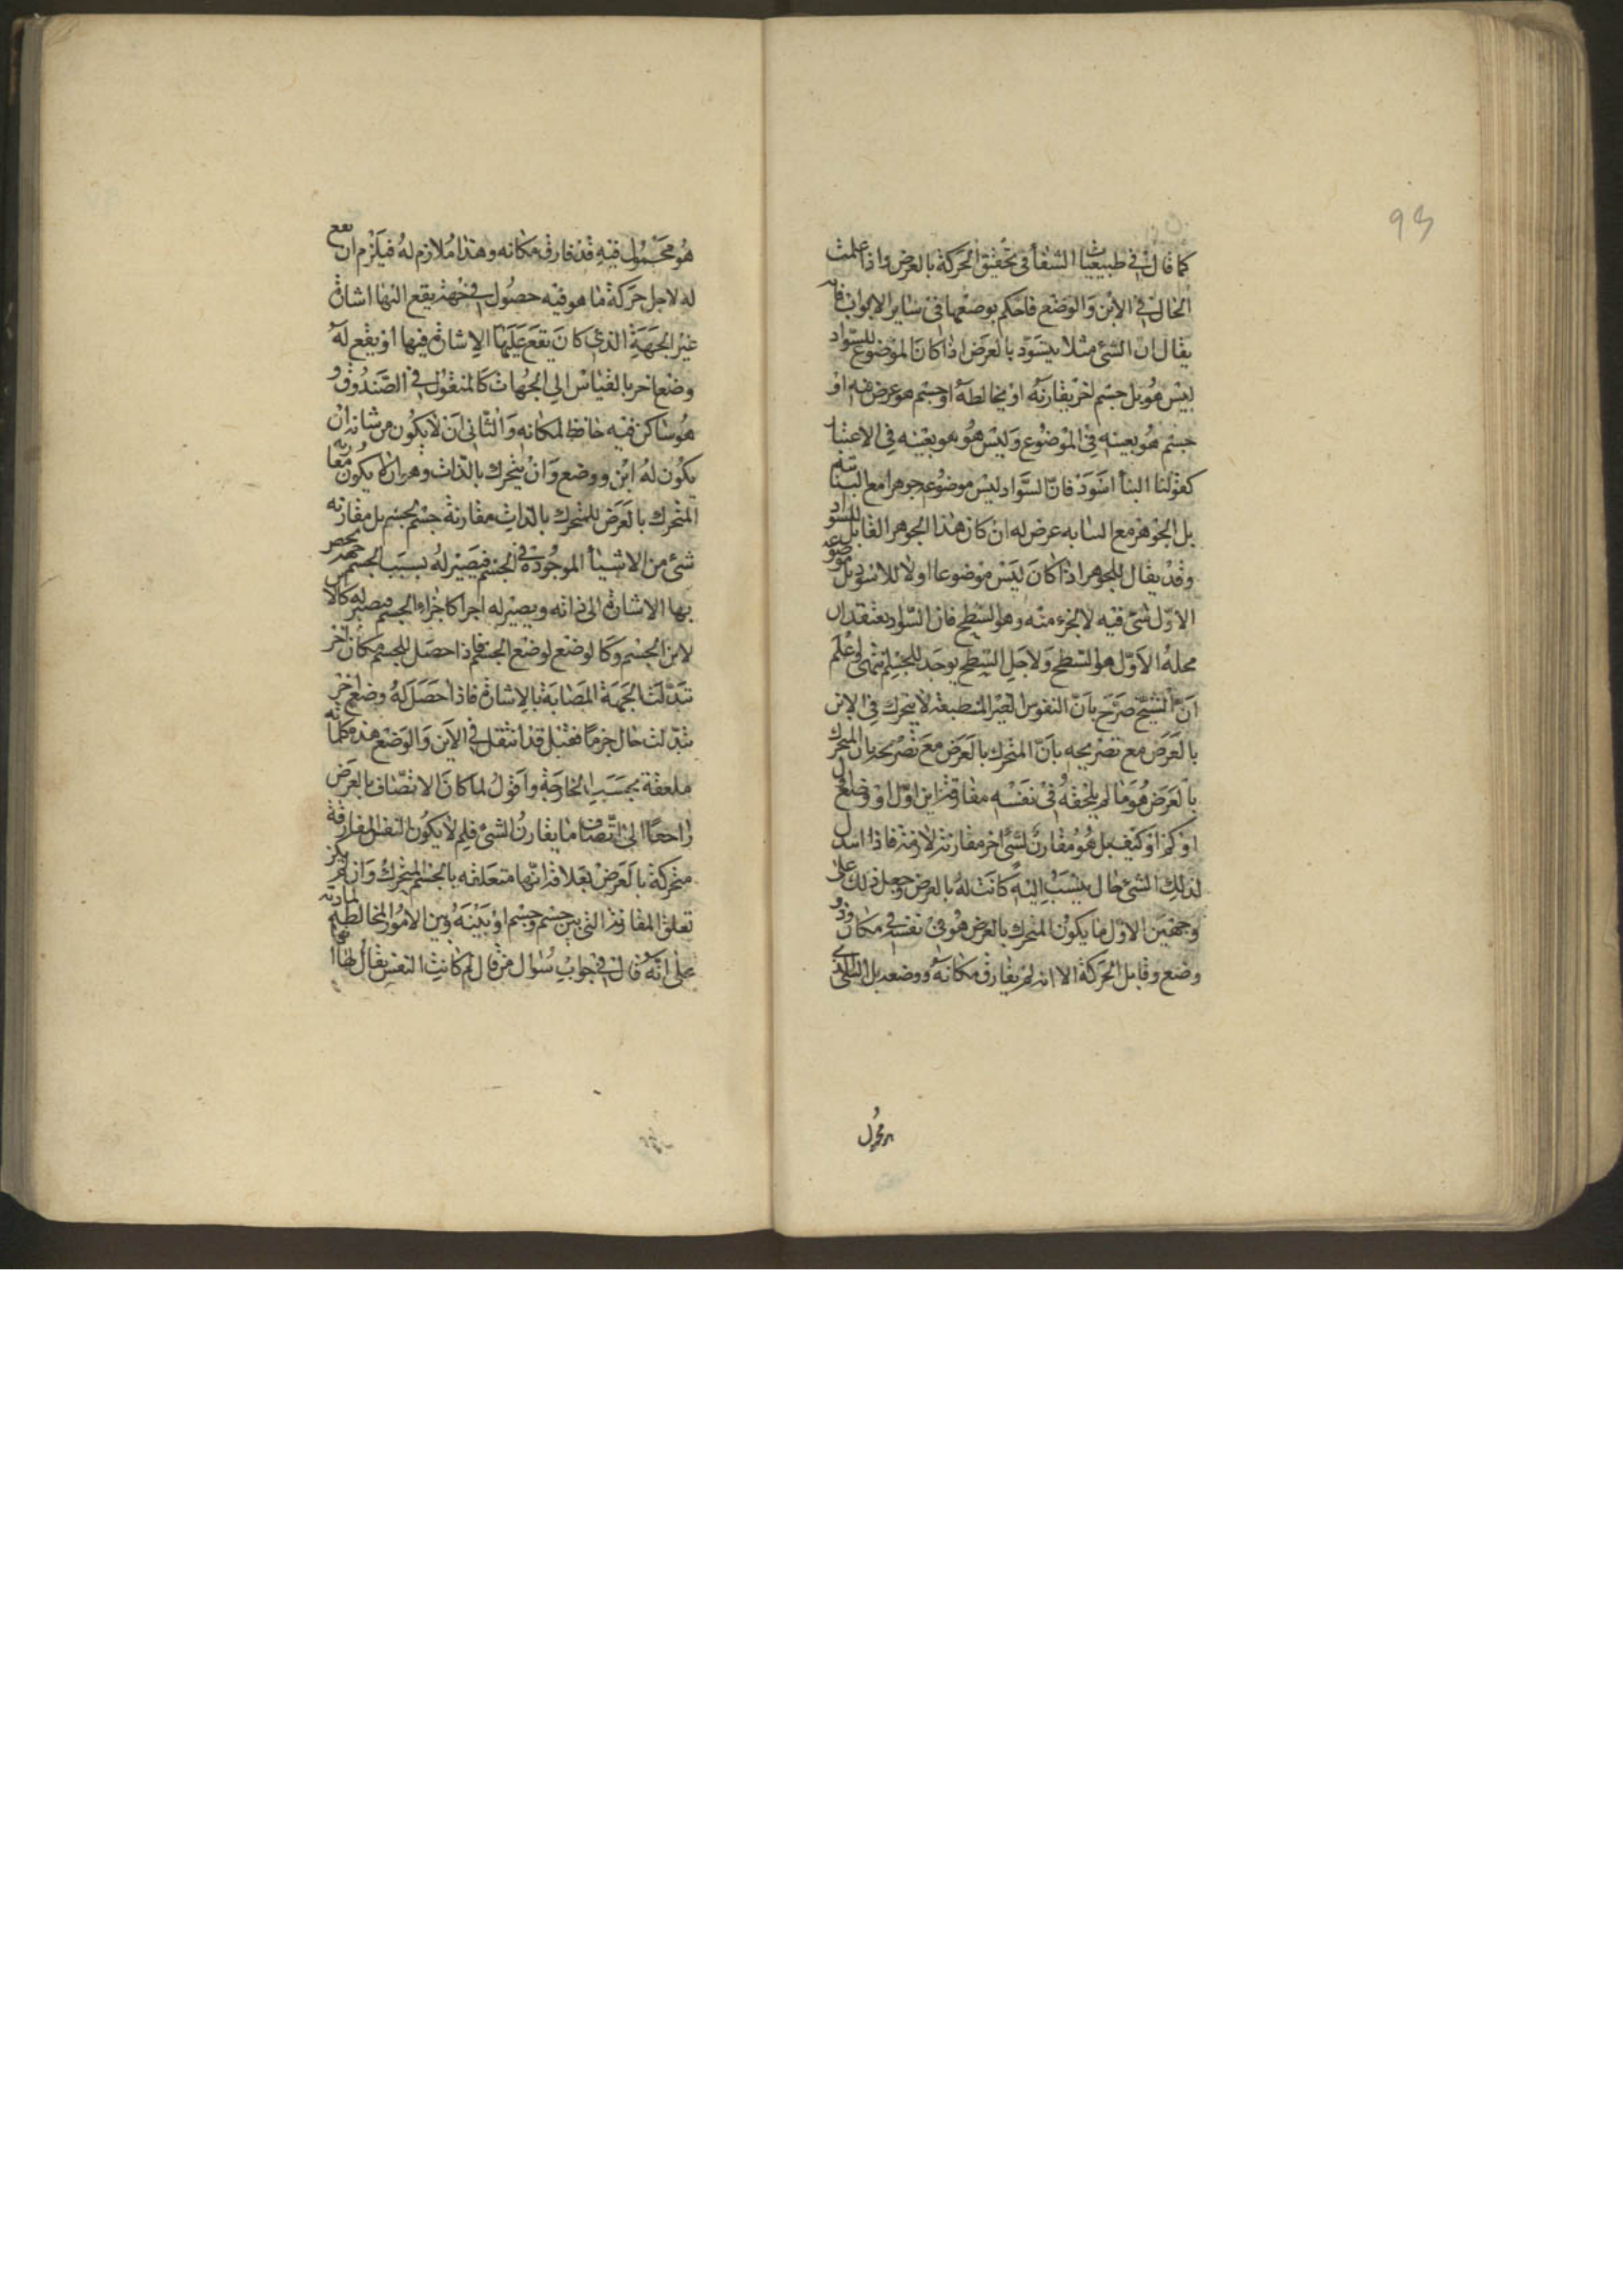 93
كما قال في طبيعيات الشفا في تحقيق الحركة بالعرض واذا علمت
الحال في الاين والوضع فاحكم بوضعها في ساير الابواب فانه
يقال ان الشئ مثلا يتسود بالعرض اذا كان الموضوع للسواد
ليس هو بل جسم اخر يقارنه او يخالطه او جسم هو عرض فيه او
جسم هو بعينه في الموضوع وليس هو هو بعينه في الاعتبار
كقولنا البنا اسود فان السواد ليس موضوعه جوهرا مع البنا
بل الجوهر مع البنائية عرض له ان كان هذا الجوهر القابل للسواد
وقد يقال للجوهر اذا كان ليس موضوعا اولا للاسود بل موضوعه
الاول شئ فيه لا لجزء منه وهو السطح فان السواد يعتقد ان
محله الاول هو السطح ولاجل السطح يوجد للجسم ثم لو علم
ان الشيخ صرح بان النفوس الغير المنطبعة لا يتحرك في الاين
بالعرض مع تصريحه بان المتحرك بالعرض مع تصريحه بان المتحرك
بالعرض هو ما لم يلحقه في نفسه مفارقة اين اول او وضع اول
او كم او كيف بل هو مقارن لشئ اخر مقارنة لازمة فاذا تبدل
لذلك الشئ حال ينسب اليه كانت له بالعرض وجعل ذلك على
وجهين الاول ما يكون المتحرك بالعرض هو في نفسه في مكان وذو
وضع وقابل الحركة الا انه لم يفارق مكانه ووضعه بل الشئ الذي
هو محمول
هو محمول فيه قد فارق مكانه وهذا ملازم له فيلزم ان يقع
له لاجل حركة ما هو فيه حصول في جهة يقع اليها اشارة
غير الجهة الذي كان يقع عليها الاشارة فيها او يقع له
وضع اخر بالقياس الي الجهات كالمنقول في الصندوق و
هو ساكن فيه حافظ لمكانه والثاني ان لا يكون من شانه ان
يكون له اين ووضع وان يتحرك بالذات وهو ان لا يكون مقارنة
المتحرك بالعرض للمتحرك بالذات مقارنة جسم لجسم بل مقارنة
شئ من الاشيا الموجودة في الجسم فيصير له بسبب الجسم جهة يحصر
بها الاشارة الى ذاته ويصير له اجزا كاجزاء الجسم فيصير له كالاين
لاين الجسم وكالوضع لوضع الجسم فاذا حصل للجسم مكان اخر
تبدلت الجهة المصابة بالاشارة فاذا حصل له وضع اخر
تبدلت حال جزما فخيل قد انتقل في الاين والوضع هذه كلماته
ملعقة بحسب الخارجة واقول لما كان الاتصاف بالعرض
راجعا الى اتصاف ما يقارن الشئ فلم لا يكون النفس المفارقة
متحركة بالعرض بعلاقة انها متعلقه بالجسم المتحرك وان لم يكن
تعلق المقارنة التي بين جسم وجسم او بينه وبين الامور المخالطة لمادته
على انه قال في جواب سؤال من قال لم كانت النفس يقال لها انها